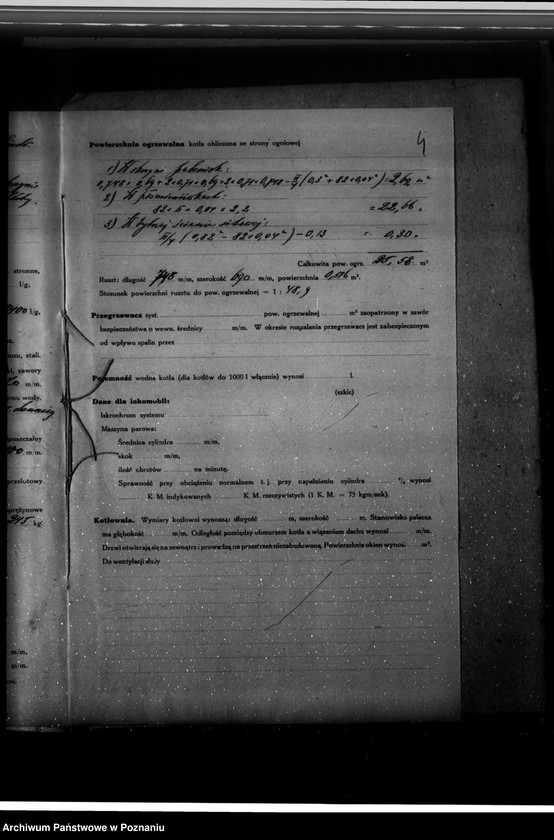 4
Powierzchnia ogrzewalna kotła obliczona ze strony ogniowej
1) W skrzyni
2) W płomieniówkach:
82 × π × 0,04 × 2,2 = 22,66 "
3) W tylnej ścianie sitowej:
π/4 ( 0,82² − 82 × 0,04² ) − 0,13 = 0,30 "
Całkowita pow. ogrz. 25,58 m²
Ruszt: długość 748 m/m, szerokość 690 m/m, powierzchnia 0,516 m².
Stosunek powierzchni rusztu do pow. ogrzewalnej = 1 : 48,9
Przegrzewacz syst. pow. ogrzewalnej m² zaopatrzony w zawór
bezpieczeństwa o wewn. średnicy m/m. W okresie rozpalania przegrzewacz jest zabezpieczonym
od wpływu spalin przez
Pojemność wodna kotła (dla kotłów do 1000 l włącznie) wynosi l.
(szkic)
Dane dla lokomobili:
Iskrochron systemu
Maszyna parowa:
Średnica cylindra m/m,
skok m/m,
ilość obrotów na minutę.
Sprawność przy obciążeniu normalnem t. j. przy napełnieniu cylindra % wynosi
K. M. indykowanych K. M. rzeczywistych (1 K. M. = 75 kgm/sek).
Kotłownia. Wymiary kotłowni wynoszą: długość m, szerokość m. Stanowisko palacza
ma głębokość m/m. Odległość pomiędzy obmurzem kotła a wiązaniem dachu wynosi m/m.
Drzwi otwierają się na zewnątrz i prowadzą na przestrzeń niezabudowaną. Powierzchnia okien wynosi m².
Do wentylacji służy
stronne,
l/g,
l/g,
stali.
zawory
m/m.
wody.
m/m.
345 kg
m/m,
m/m.
Archiwum Państwowe w Poznaniu